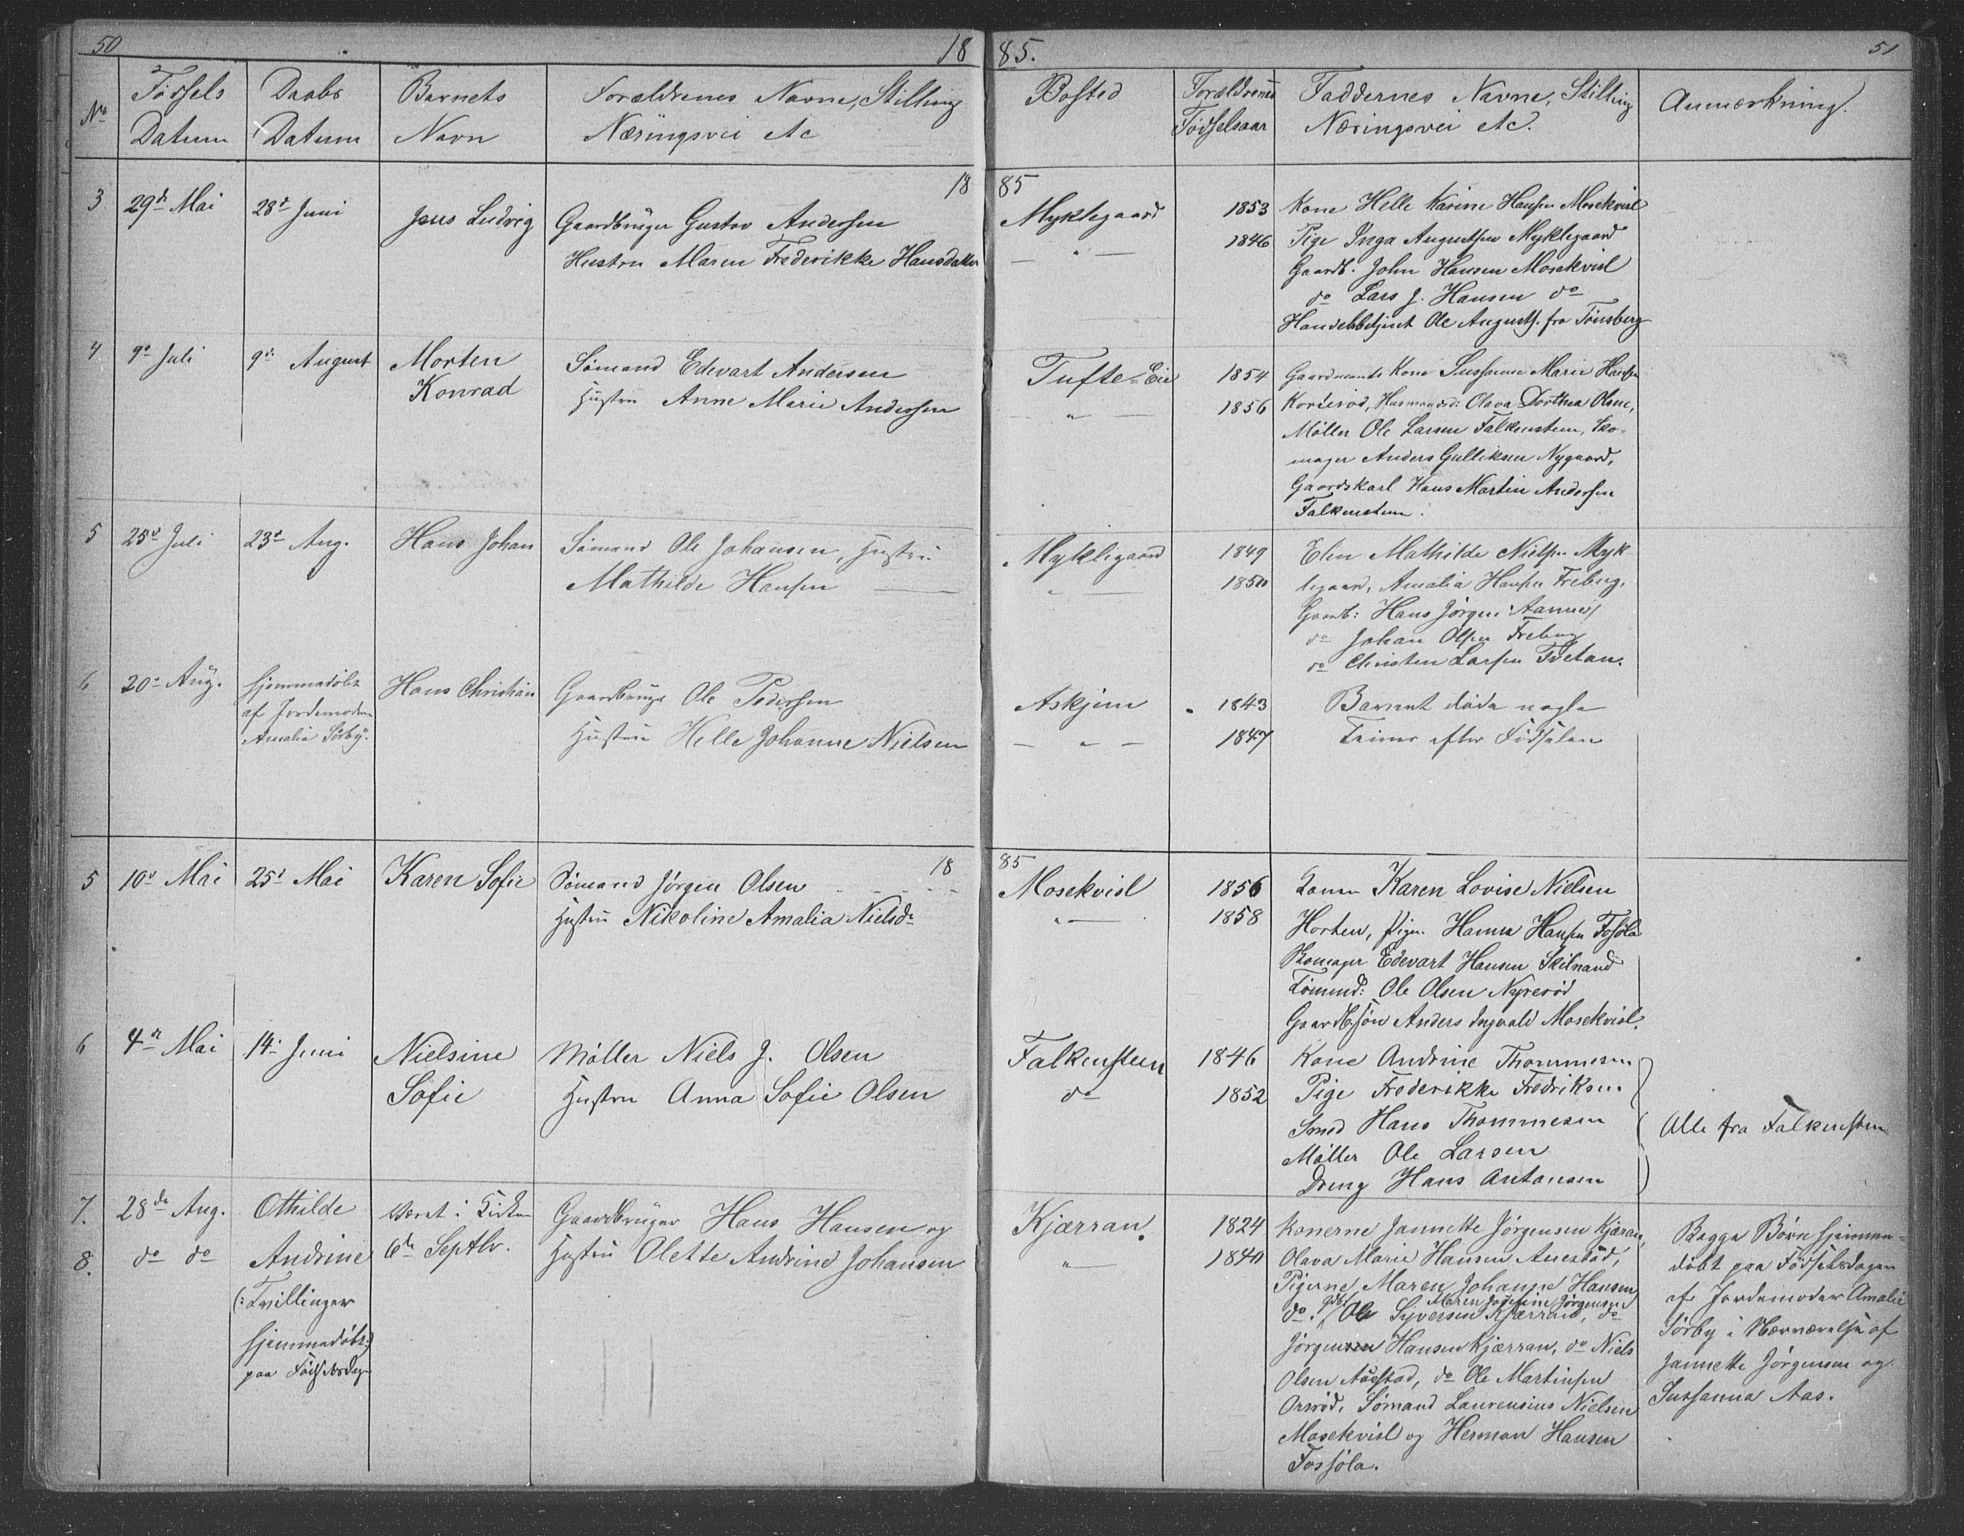 50
18
85.
51
No
Fødsels
Datum
Daabs
Datum
Barnets
Navn
Forældrenes Navne, Stilling
Næringsvei etc
Bosted
Forældrenes
Fødselsaar
Faddernes Navne, Stilling
Næringsvei etc.
Anmærkning.
18
85
3
29de Mai
28de Juni
Jens Ludvig
Gaardbruger Gustav Andersen
Hustru Maren Frederikke Hansdatter
Myklegaard
— " —
1853
1846
Kone Helle Karine Hansen Mosekvisl
Pige Inga Augustsen Myklegaard
Gaardb. John Hansen Mosekvisl
do Lars J. Hansen do
Handelsbetjent Ole Augusts. fra Tønsberg
4
9de Juli
9de August
Morten
Konrad
Sømand Edevart Andersen
Hustru Anne Marie Andersen
Tufte-Eie
— " —
1854
1856
Gaardmands Kone Sussanne Marie Hansen
Korterød, Husmandsd: Olava Dorthea Olsen,
Møller Ole Larsen Falkensten, Sko-
mager Anders Gulliksen Nygaard,
Gaardskarl Hans Martin Andersen
Falkensten.
5
25de Juli
23de Aug.
Hans Johan
Sømand Ole Johansen, Hustru
Mathilde Hansen ——
Myklegaard
— " —
1849
1850
Elen Mathilde Nielsen Myk
legaard, Amalia Hansen Freberg.
Gaardb: Hans Jørgen Aannes,
do Johan Olsen Freberg
do Christen Larsen Tvetan.
6
20de Aug.
Hjemmedøbt
af Jordemoder
Amalia Sørby.
Hans Christian
Gaardbruger Ole Pedersen
Hustru Helle Johanne Nielsen
Askjem
— " —
1843
1847
Barnet døde nogle
Timer efter Fødselen
18
85
5
10de Mai
25de Mai
Karen Sofie
Sømand Jørgen Olsen
Hustru Nikoline Amalia Nielsdr
Mosekvisl
" —
1856
1858
Konen Karen Lovise Nielsen
Horten, Pigen Hanna Hansen Fossøla
Skomager Edevart Hansen Skilnand
Tømmd: Ole Olsen Nyrerød
Gaardbsøn Anders Ingvald Mosekvisl.
6
4de Mai
14de Juni
Nielsine
Sofie
Møller Niels J. Olsen
Hustru Anna Sofie Olsen
Falkensteen
do
1846
1852
Kone Andrine Thommesen
Pige Frederikke Fredriksen
Smed Hans Thommesen
Møller Ole Larsen
Dreng Hans Antonsen
Alle fra Falkensten
7.
28de Aug.
Othilde
Været i Kirken
Gaardbruger Hans Hansen og
Kjærran.
1824
8.
do do
Andrine
6te Septbr.
Hustru Olette Andrine Johansen
"
1840
(:Tvillinger
hjemmedøbt:)
paa Fødselsdagen
Konerne Jannette Jørgensen Kjærran,
Olava Marie Hansen Auestad,
Pigerne Maren Johanne Hansen
Maren Josefine Jørgensen
do. Gdbr Ole Syversen Kjærran, do
Jørgen Hansen Kjærran, do Niels
Olsen Auestad, do Ole Martinsen
Orerød, Sømand Laurensius Nielsen
Mosekvisl og Herman Hansen
Fossøla.
Begge Børn hjemme-
døbt paa Fødselsdagen
af Jordemoder Amalie
Sørby i Nærværelse af
Jannette Jørgensen og
Sussanna Aas.